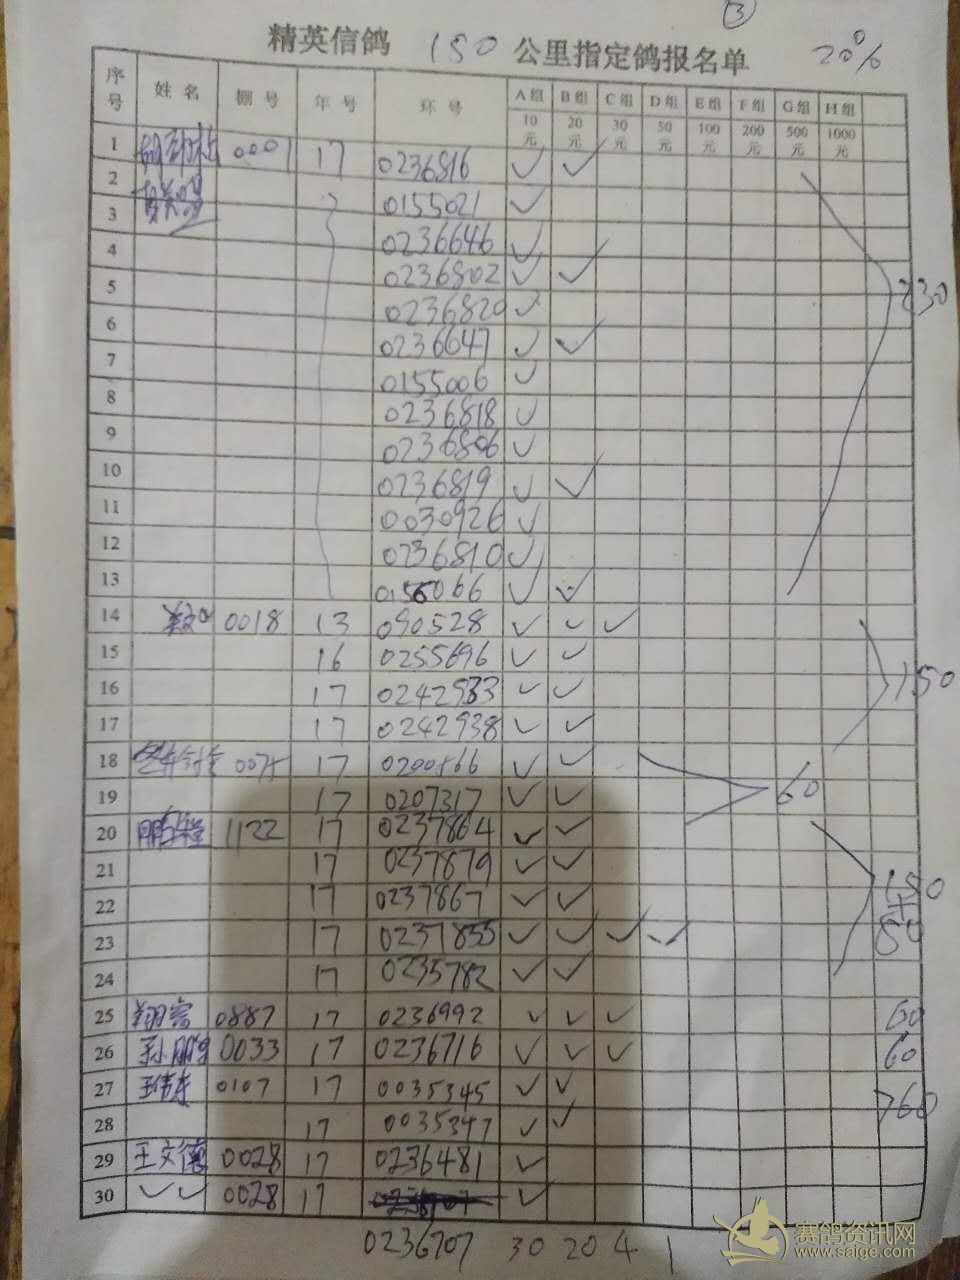 ③
精英信鸽 150 公里指定鸽报名单 20%
序号 姓名 棚号 年号 环号 A组 10元 B组 20元 C组 30元 D组 50元 E组 100元 F组 200元 G组 500元 H组 1000元
1 0001 17 0236816 ✓ ✓
2 0155021 ✓
3 0236646 ✓
4 0236802 ✓ ✓
5 0236820 ✓
6 0236647 ✓ ✓
7 0155006 ✓
8 0236818 ✓
9 0236806 ✓
10 0236819 ✓ ✓
11 0030926 ✓
12 0236810 ✓
13 066 ✓ ✓
230
14 0018 13 090528 ✓ ✓ ✓
15 16 0255696 ✓ ✓
16 17 0242933 ✓ ✓
17 17 0242938 ✓ ✓
150
18 17 ✓ ✓
19 17 0207317 ✓ ✓
60
20 1122 17 0237864 ✓ ✓
21 17 0237879 ✓ ✓
22 17 0237867 ✓ ✓
23 17 0237835 ✓ ✓ ✓ ✓
24 17 0235782 ✓ ✓
150
25 0887 17 0236992 ✓ ✓ ✓ 60
26 孙鹏 0033 17 0236716 ✓ ✓ ✓ 60
27 王伟东 0107 17 0035345 ✓ ✓ 760
28 17 0035347 ✓ ✓
29 王文德 0028 17 0236481 ✓
30 ✓ ✓ 0028 17 ✓
0236707 30 20 4 1
赛鸽资讯网
www.saige.com